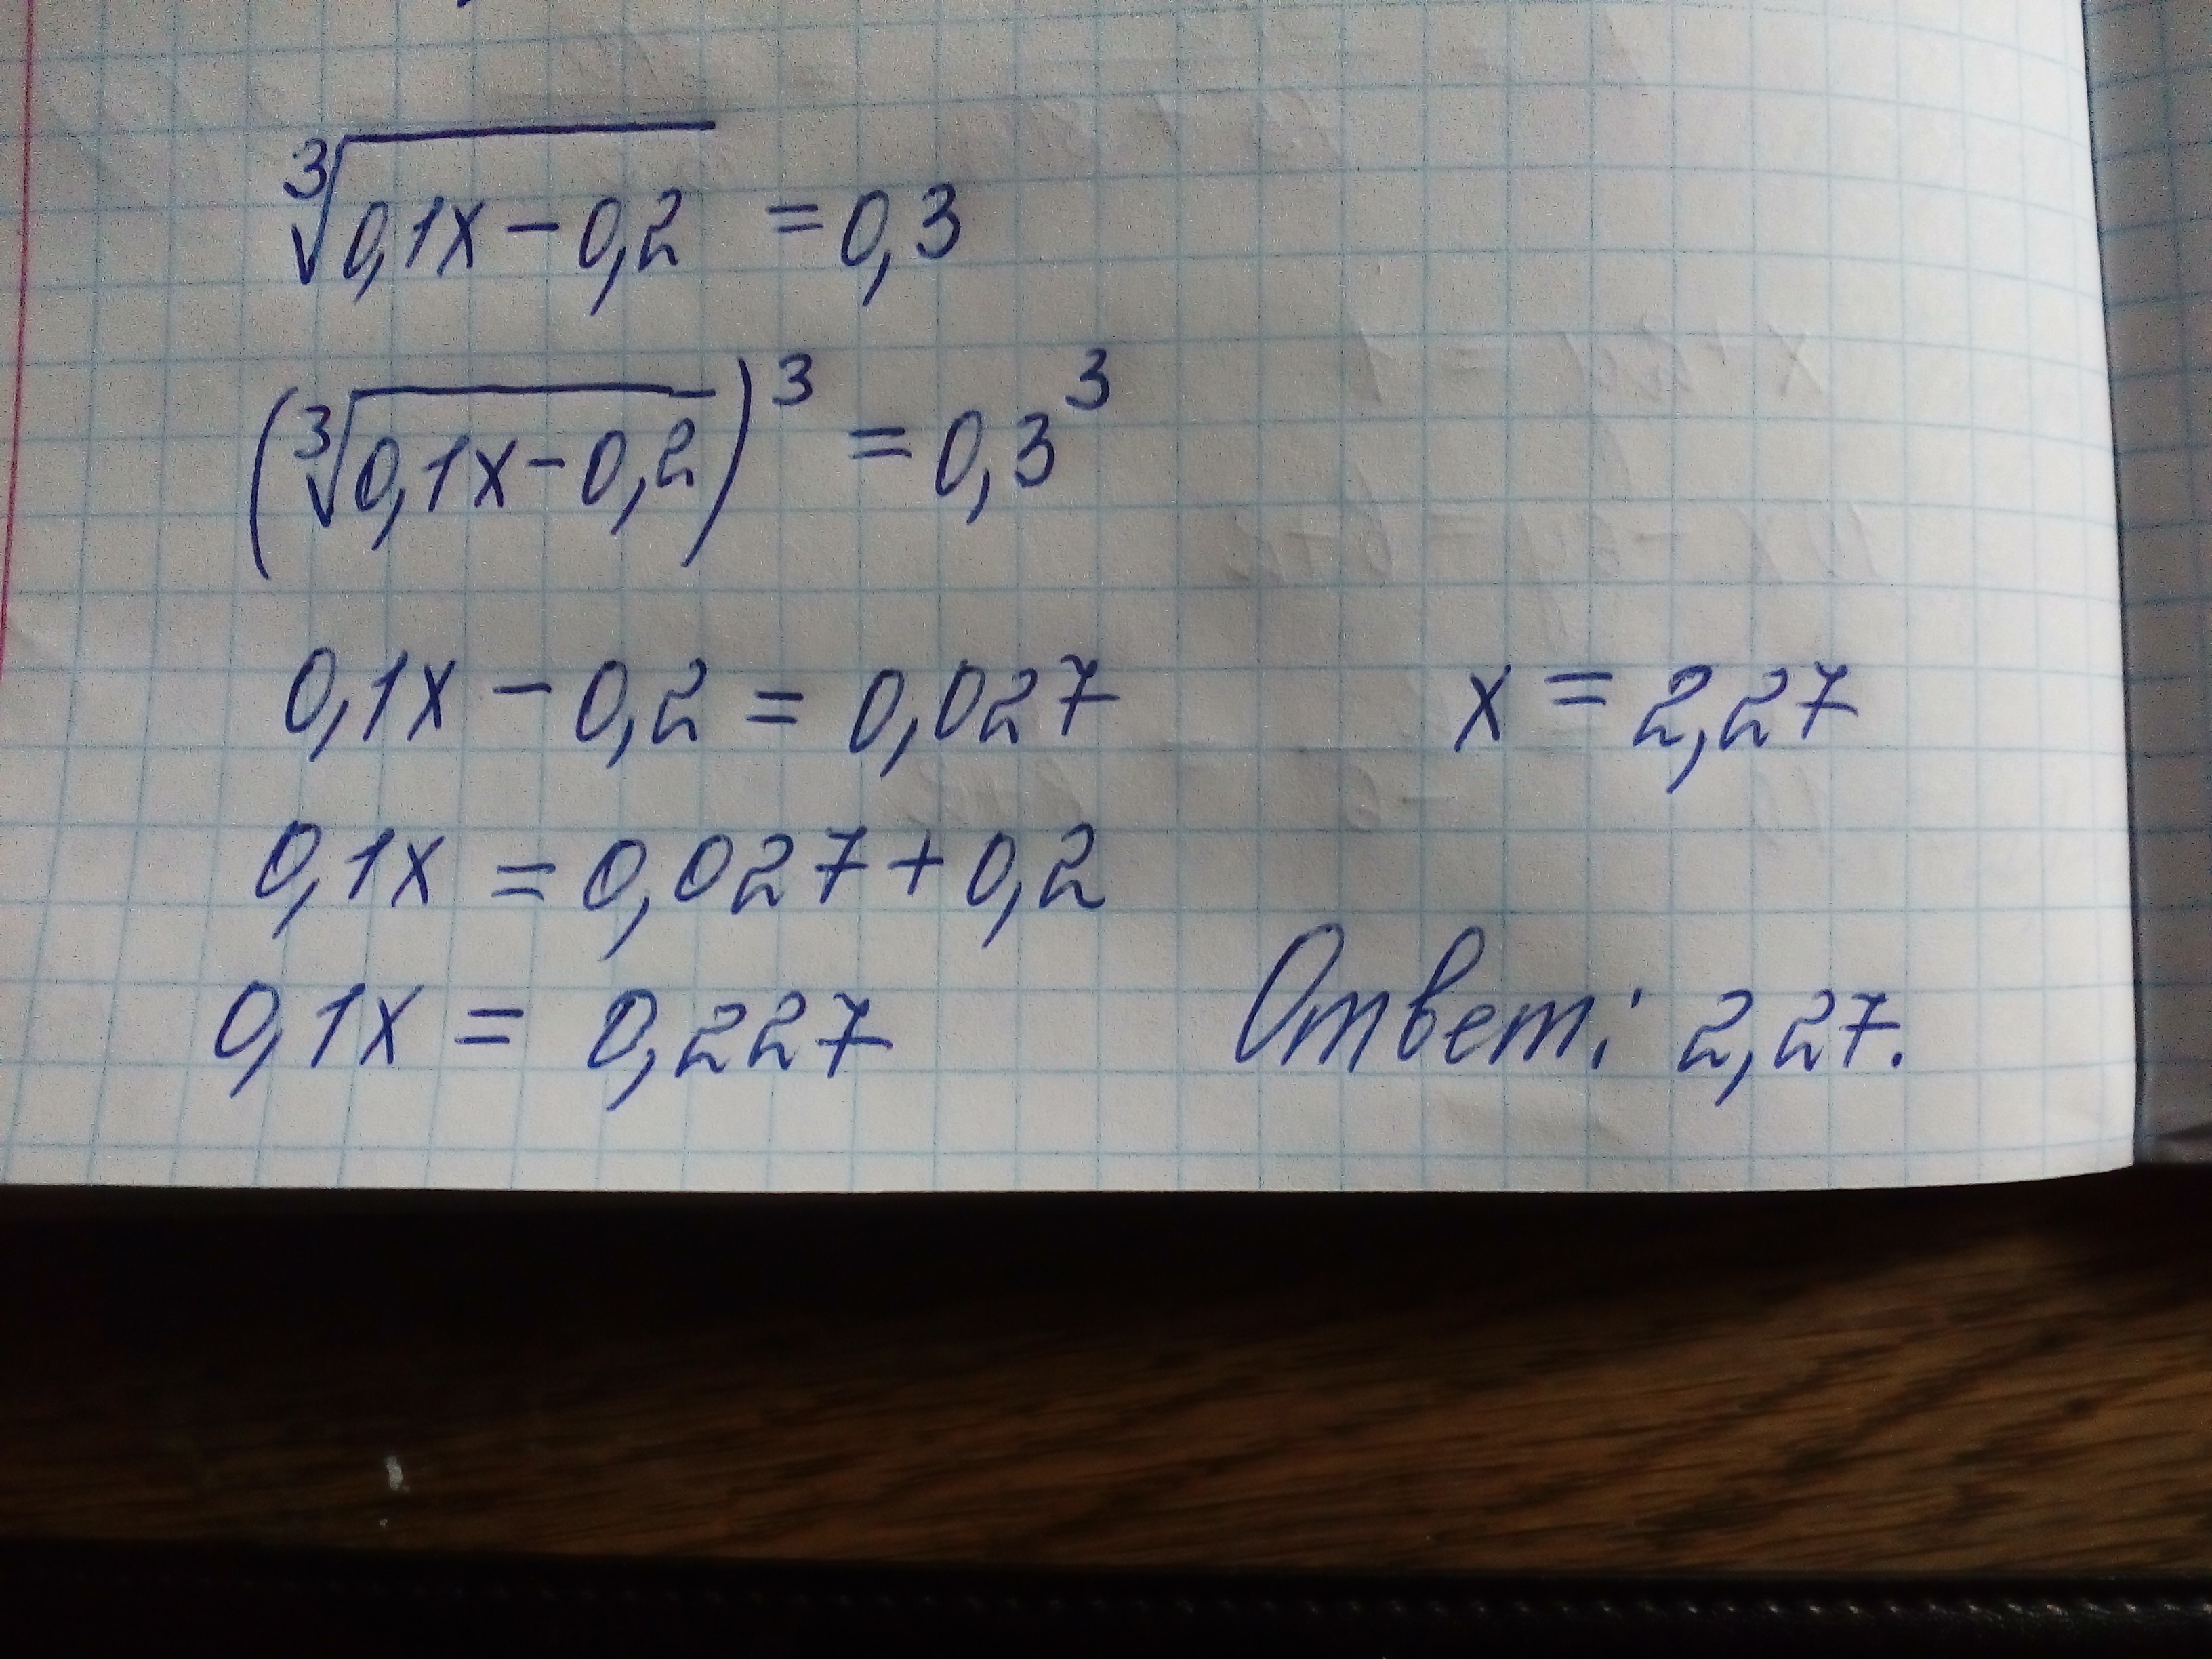 ∛(0,1x − 0,2) = 0,3
(∛(0,1x − 0,2))³ = 0,3³
0,1x − 0,2 = 0,027
0,1x = 0,027 + 0,2
0,1x = 0,227
x = 2,27
Ответ: 2,27.